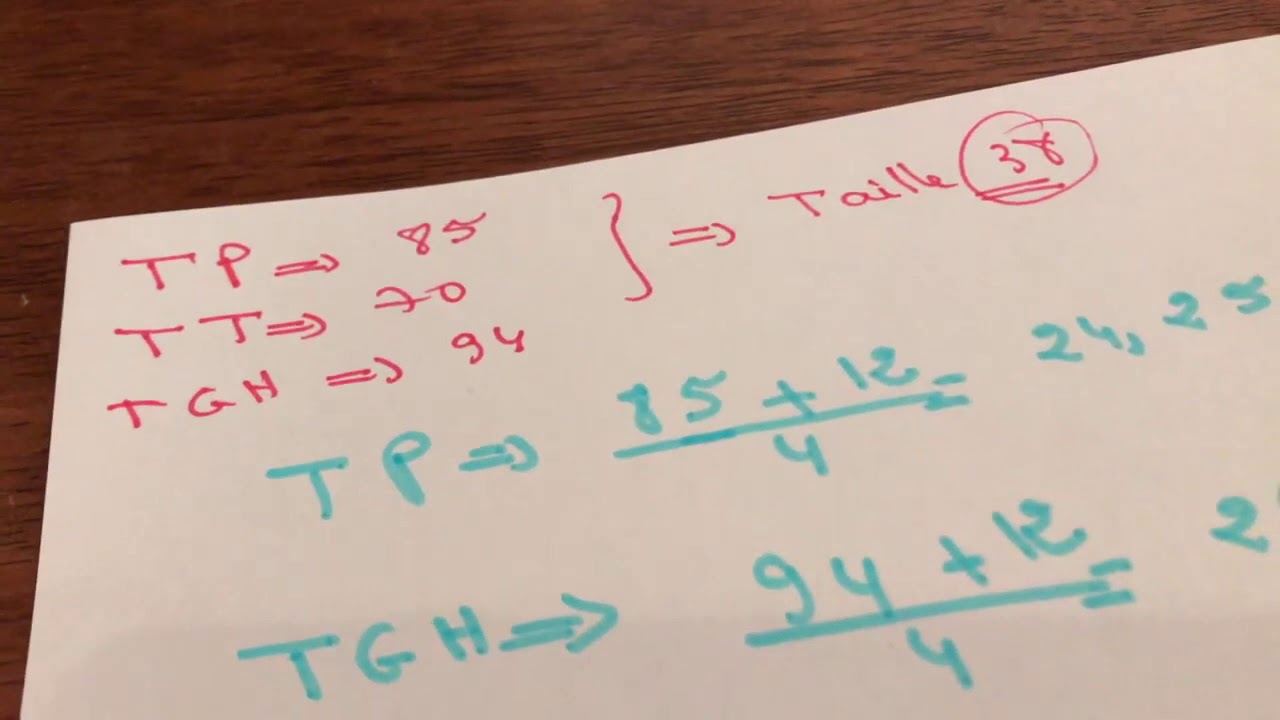 TP ⇒ 85
TT ⇒ 70
TGH ⇒ 94
} ⇒ Taille 38
TP ⇒ (85 + 12)/4 = 24,25
TGH ⇒ (94 + 12)/4 = 2